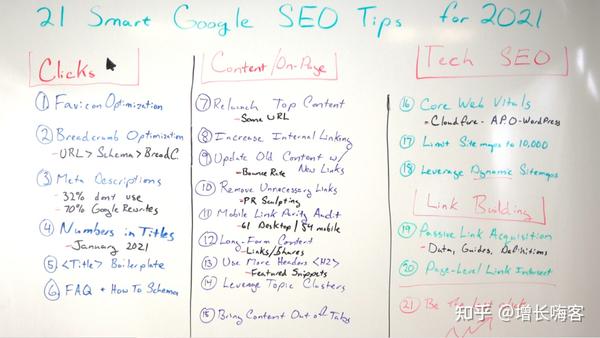 21 Smart Google SEO Tips for 2021
Clicks
1 Favicon Optimization
2 Breadcrumb Optimization
- URL > Schema > BreadC.
3 Meta Descriptions
- 32% dont use
- 70% Google Rewrites
4 Numbers in Titles
- January 2021
5 <Title> Boilerplate
6 FAQ + How To Schema
Content/On-Page
7 Relaunch Top Content
- Same URL
8 Increase Internal Linking
9 Update Old Content w/
New Links
- Bounce Rate
10 Remove Unnecessary Links
- PR Sculpting
11 Mobile Link Parity Audit
- 61 Desktop / 54 mobile
12 Long-Form Content
- Links/Shares
13 Use More Headers <H2>
- Featured Snippets
14 Leverage Topic Clusters
15 Bring Content Out of Tabs
Tech SEO
16 Core Web Vitals
- Cloudflare - APO - WordPress
17 Limit Sitemaps to 10,000
18 Leverage Dynamic Sitemaps
Link Building
19 Passive Link Acquisition
- Data, Guides, Definitions
20 Page-Level Link Intersect
21 Be The Last Click
知乎 @增长嗨客